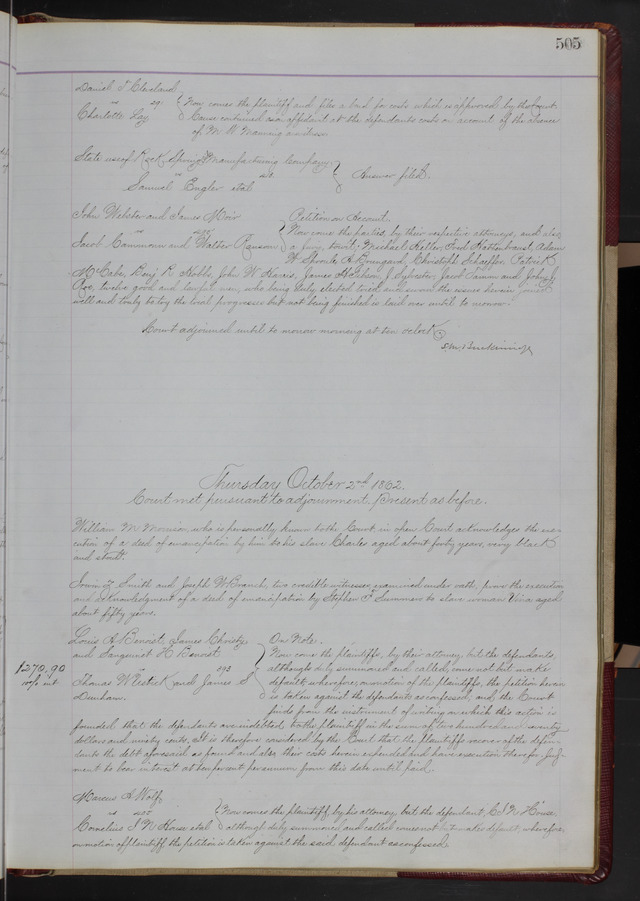 505
Daniel T Cleveland
vs 291 Now comes the plaintiff and files a bond for costs which is approved by the Court.
Charlotte Cause continued on affidavit at the defendants costs on account of the absence
of M. W Manning a witness
State use of Rock Spring Manufacturing Company
vs Answer filed.
Samuel Engler et al
John Webster and James Moir Petition on Account.
vs Now come the parties, by their respective attorneys, and also
Jacob and Walter Ransom a jury, to wit: Michael Heller, Fred Adam
W A Christoph Schaeffer, Patrick
McCabe, Benj R Hobbs, John W Harris, James J Sylvester, Jacob and John
twelve good and lawful men, who being duly elected tried and sworn the issues herein joined
well and truly to try the trial progresses but not being finished is laid over until to morrow.
Court adjourned until to morrow morning at ten oclock
Thursday October 2nd 1862.
Court met pursuant to adjournment. Present as before.
William M who is personally known to the Court in open Court acknowledges the exe-
cution of a deed of emancipation by him to his slave Charles aged about forty years, very black
and stout.
Irwin Z Smith and Joseph W Branch, two credible witnesses examined under oath, prove the execution
and acknowledgment of a deed of emancipation by Stephen Summers to slave woman aged
about fifty years.
Louis A Benoist, James Christy On Note.
and Sanguinet H Benoist Now come the plaintiffs, by their attorney, but the defendants,
1270,90 vs 293 although duly summoned and called, come not but make
10 % int Thomas and James S default, wherefore, on motion of the plaintiffs, the petition herein
Dunham. is taken against the defendants as confessed, and, the Court
finds from the instrument of writing on which this action is
founded that the defendants are indebted to the plaintiff in the sum of two hundred and seventy
dollars and ninety cents. It is therefore considered by the Court that the plaintiffs recover of the defen-
dants the debt aforesaid as found and also their costs herein expended and have execution therefor, Judg-
ment to bear interest at ten per cent per annum from this date until paid.
Marcus A Wolf,
vs Now comes the plaintiff, by his attorney, but the defendant, C. I N House,
Cornelius I N House et al although duly summoned and called comes not but makes default, wherefore,
on motion of plaintiff the petition is taken against the said defendant as confessed.